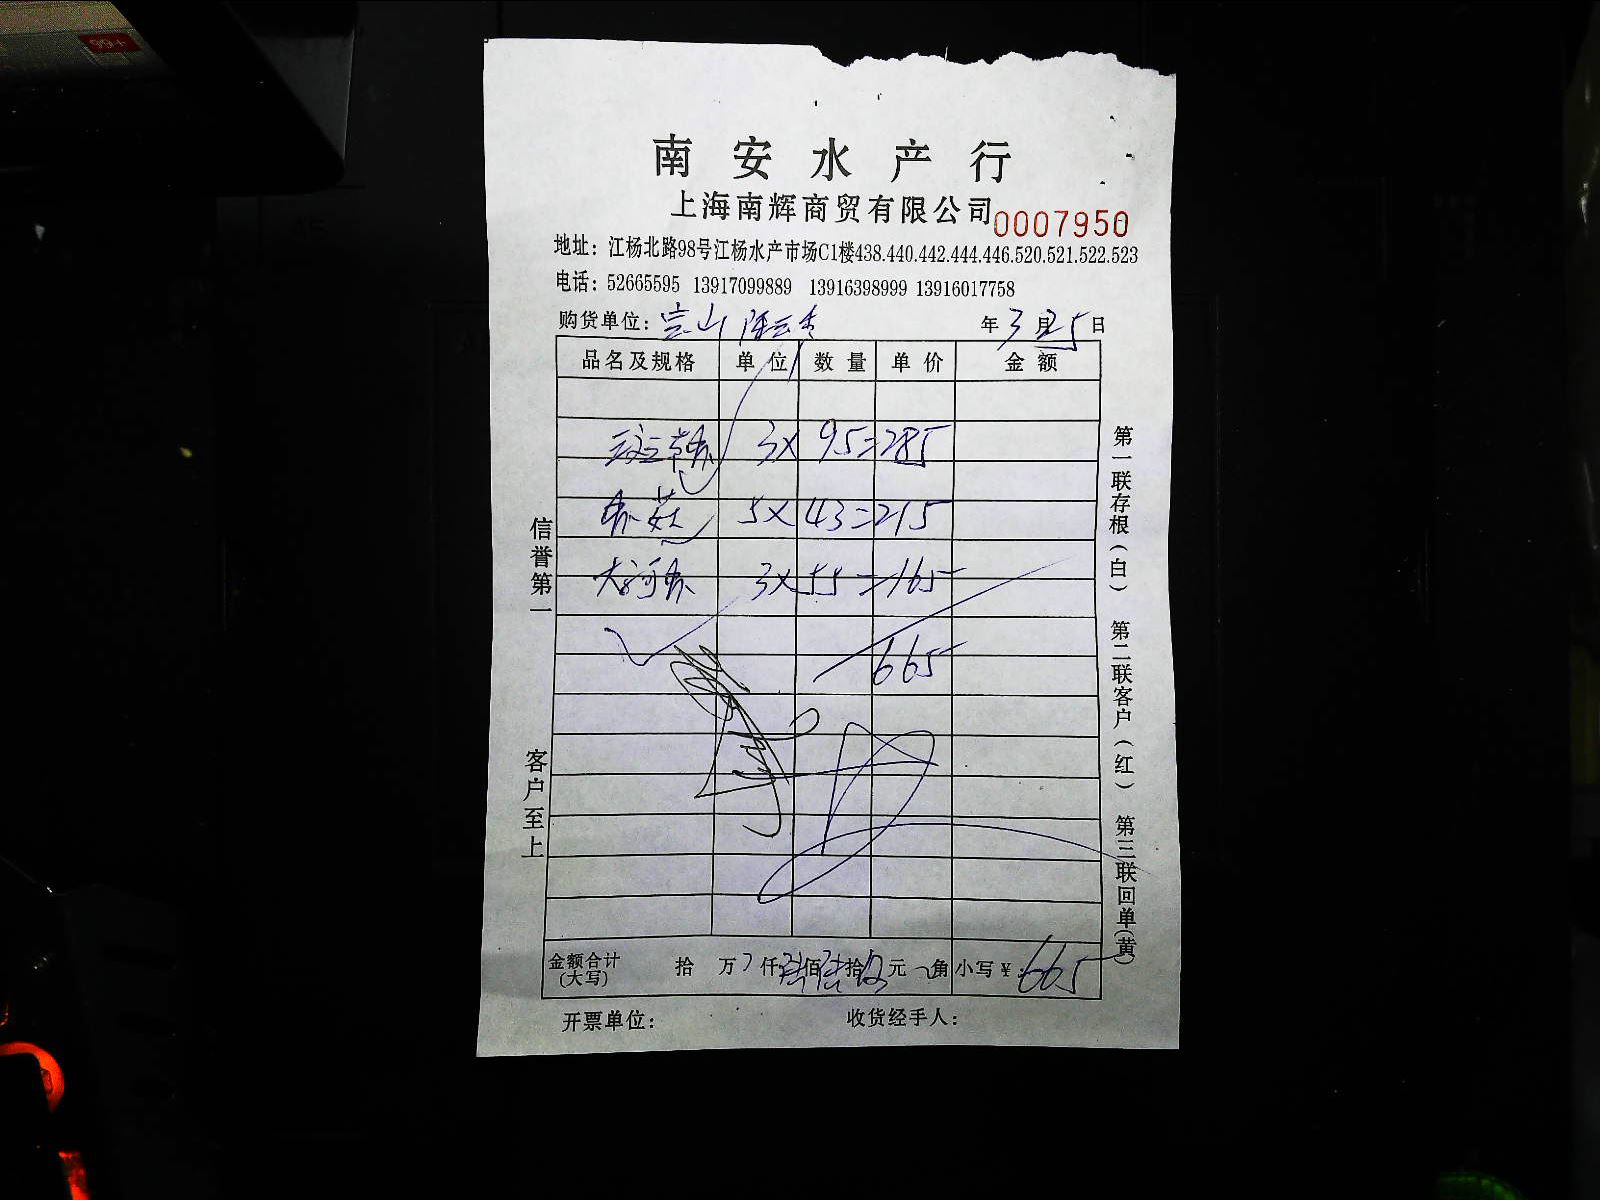 99+
南安水产行
上海南辉商贸有限公司 0007950
地址：江杨北路98号江杨水产市场C1楼438.440.442.444.446.520.521.522.523
电话：52665595 13917099889 13916398999 13916017758
购货单位： 年 3 月 25 日
品名及规格 单位 数量 单价 金额
3× 95=285
5× 43=215
大河虾 3× 55=165
665
金额合计(大写) 拾 万 仟 陆佰陆拾伍元 角 小写¥：665
开票单位： 收货经手人：
信誉第一 客户至上
第一联存根(白) 第二联客户(红) 第三联回单(黄)